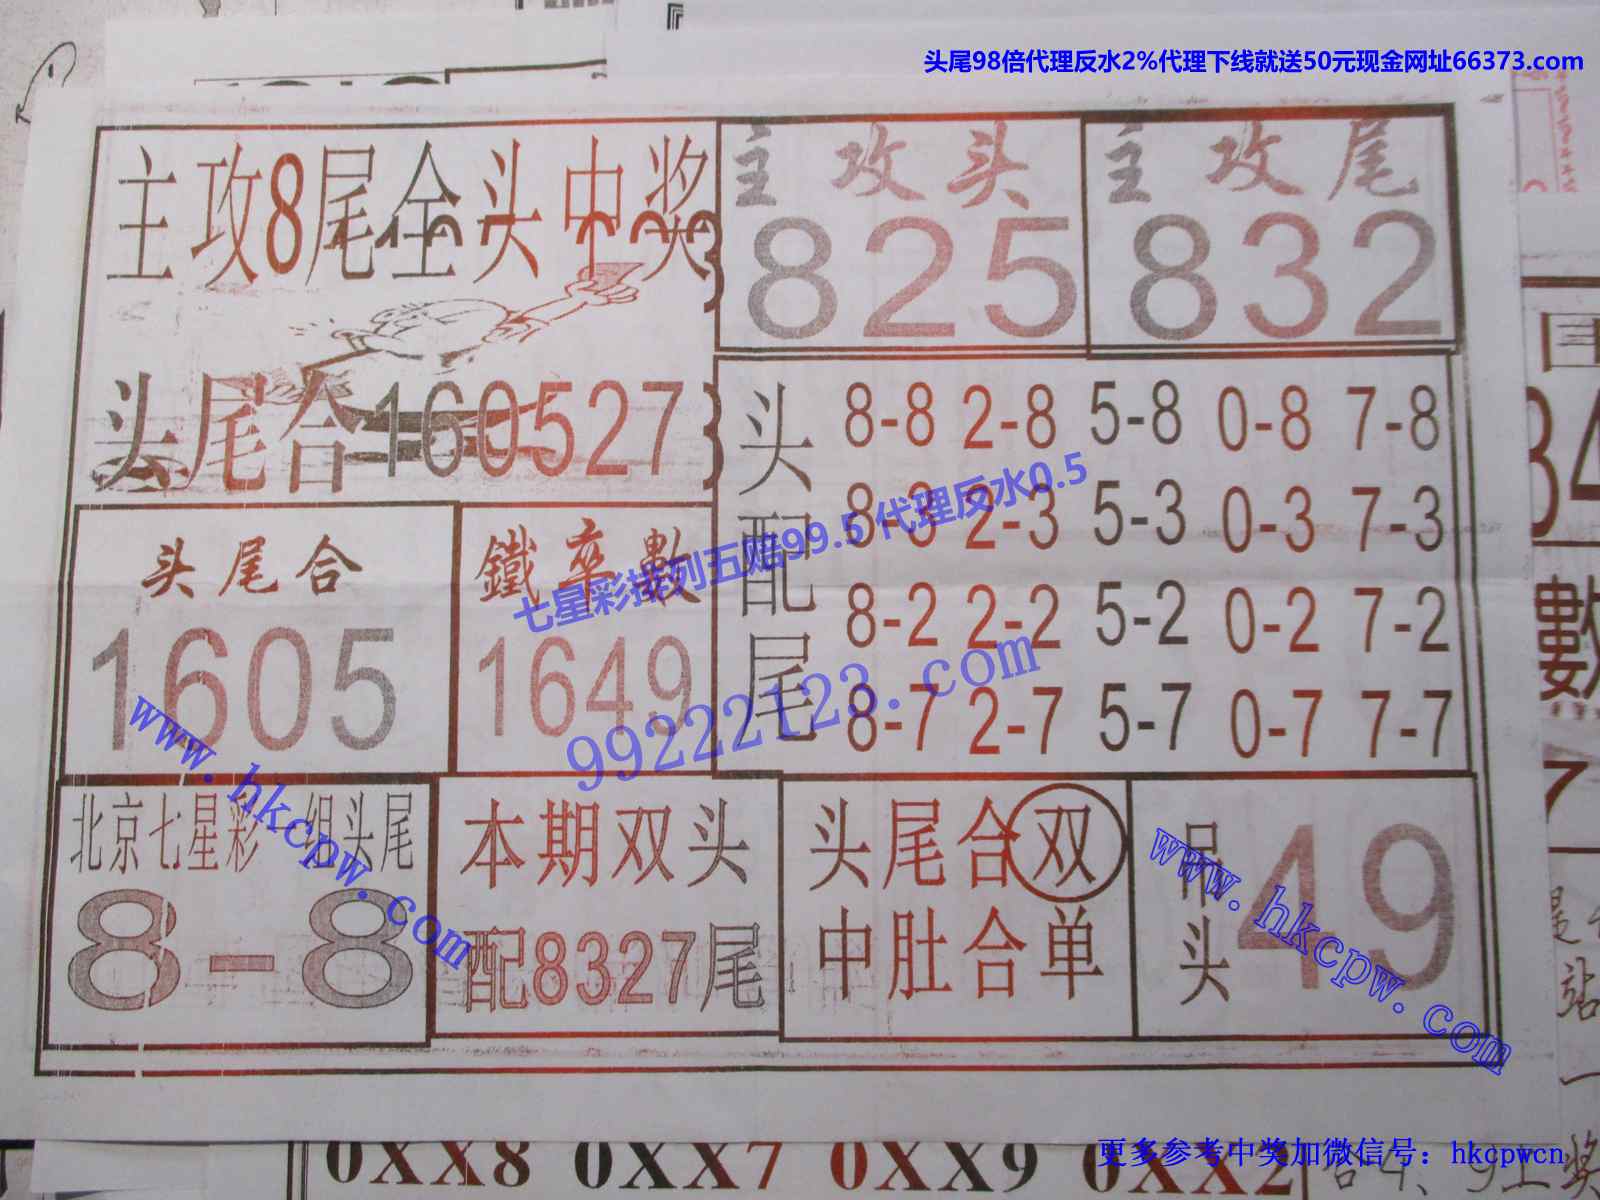 头尾98倍代理反水2%代理下线就送50元现金网址66373.com
主攻8尾全头中奖
主攻头
825
主攻尾
832
头尾合160527
头配尾
8-8 2-8 5-8 0-8 7-8
8-3 2-3 5-3 0-3 7-3
8-2 2-2 5-2 0-2 7-2
8-7 2-7 5-7 0-7 7-7
头尾合
1605
鐵率數
1649
七星彩排列五赔99.5代理反水0.5
99222123.com
www.hkcpw.com
北京七星彩一组头尾
8-8
本期双头
配8327尾
头尾合双
中肚合单
吊头
49
www.hkcpw.com
數
0XX8 0XX7 0XX9 0XX2
更多参考中奖加微信号：hkcpwcn